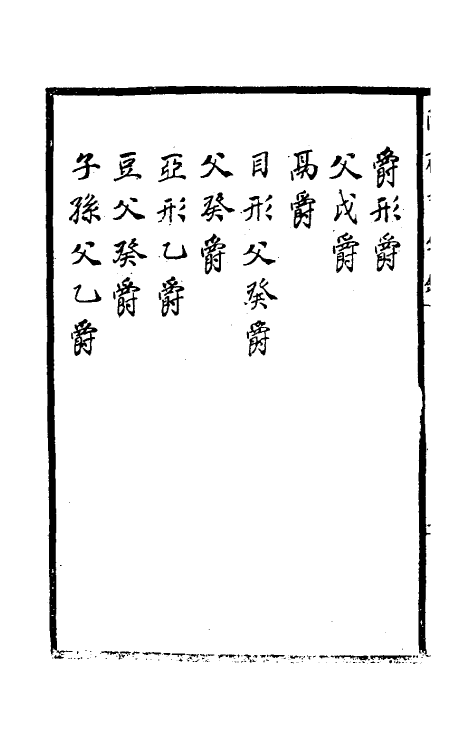 爵形爵
父戊爵
鬲爵
目形父癸爵
父癸爵
亞形乙爵
豆父癸爵
子孫父乙爵